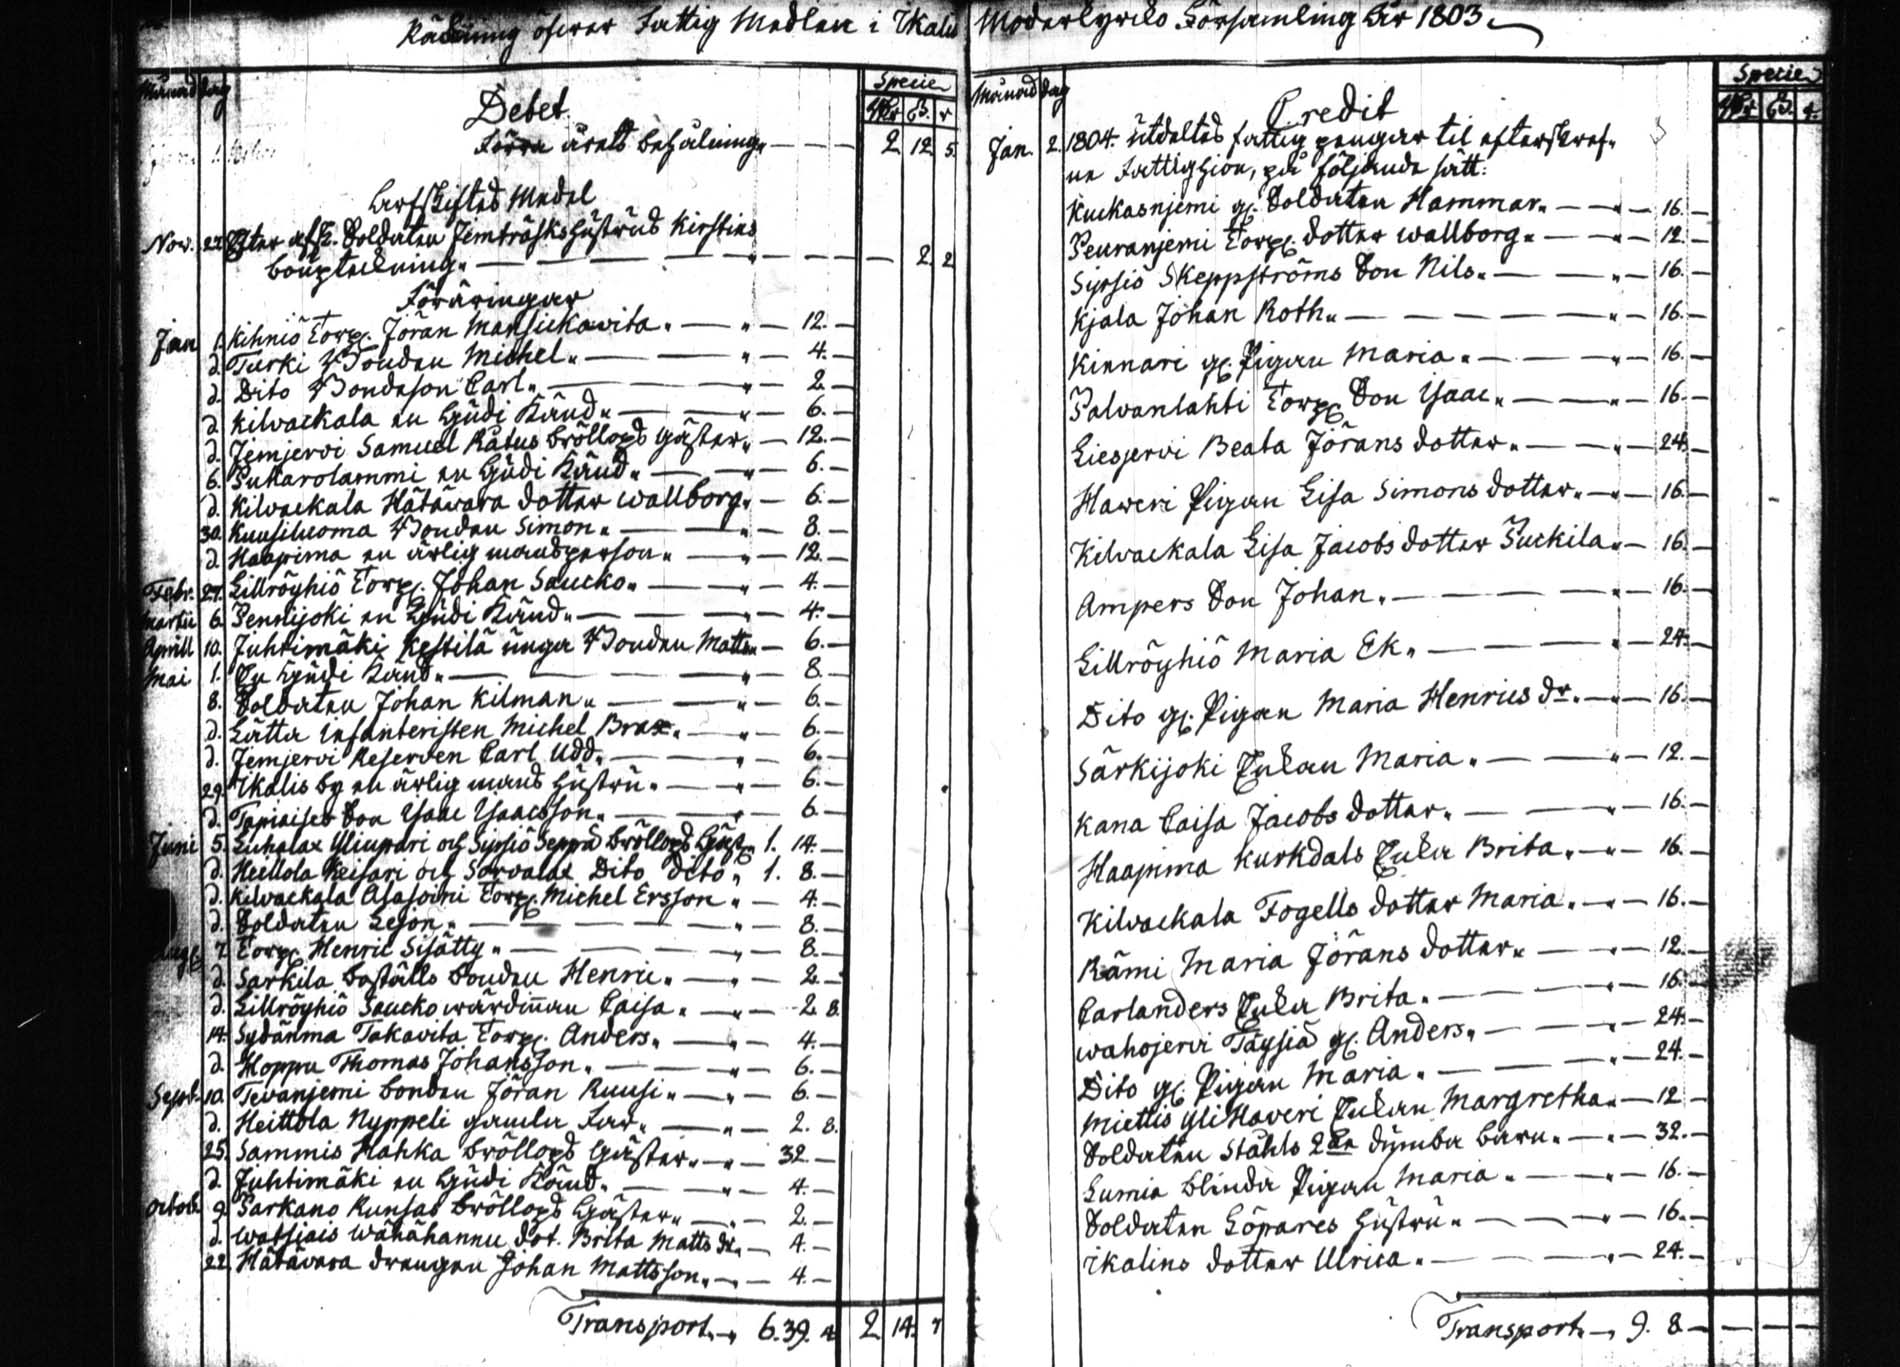 Räkning öfwer Fattig Medlen i Ikalis Moderkyrko Församling År 1803
Månad dag
Specie
Debet
Rdr ß. r
Förra årets behålning. — — — 2. 12. 5.
Arfskiftes Medel
Nov. 22. Efter afl. Soldaten Jemträsks hustrus Kirstins
bouptekning. — — — — 2. 2
Föräringar
Jan 1. Kihniö Torp. Jöran Mansickavita. — " — 12. —
d. Turki Bonden Michel. — " — 4. —
d. Dito Bondeson Carl. — " — 2. —
d. Kilvackala en Gudi Känd. — " — 6. —
d. Jemjervi Samuel Råtus bröllops gäster. — 12. —
6. Pukarolammi en Gudi Känd. — " — 6. —
d. Kilvackala Hätävara dotter Wallborg. — 6. —
30. Kuusiluoma Bonden Simon. — " — 8. —
d. Haapima en ärlig mansperson. — " — 12. —
Febr. 27. Lillröyhiö Torp. Johan Saucko. — " — 4. —
Martii 6. Penslijoki en Gudi Känd. — " — 4. —
Aprill 10. Juhtimäki Kestilä unga Bonden Matts. — 6. —
Mai 1. En Gudi Känd. — " — 8. —
8. Soldaten Johan Kilman. — " — 6. —
d. Lätta Infanteristen Michel Brax. — " — 6. —
d. Jemjervi Reserven Carl Udd. — " — 6. —
29. Ikalis by en ärlig mans hustru. — " — 6. —
d. Son Isaac Isaacsson. — " — 6. —
Juni 5. Luhalax Yliupari och Sipsiö Seppä bröllops Gäst. 1. 14. —
d. Heittola Keisari och Sarvalax Dito Dito. 1. 8. —
d. Kilvackala Torp. Michel Ersson. — 4. —
d. Soldaten Lejon. — " — 8. —
Aug. 7. Torp. Henric Sisätty. — " — 8. —
d. Sarkila boställs bonden Henric. — " — 2. —
d. Lillröyhiö Saucko wärdinnan Caisa. — " — 2 8.
14. Sydänma Takavita Torp. Anders. — " — 4. —
d. Hoppu Thomas Johansson. — " — 6. —
Sept. 10. Tevanjemi bonden Jöran Ruusi. — " — 6. —
d. Heittola Nyppeli gamla Far. — " — 2. 8.
25. Sammis Hahka bröllops Gäster. — " — 32. —
d. Juhtimäki en Gudi Känd. — " — 4. —
Octob. 9. Parkano Runsas bröllops Gäster. — " — 2. —
d. Watsiais Wähähannu dot. Brita Matts dr. — 4. —
22. Hätävara drengen Johan Mattsson. — " — 4. —
Transport. — 6. 39. 4. 2 14. 7
Månad dag
Specie
Credit
Rdr ß. r.
Jan. 2. 1804. utdeltes fattig pengar til efterskref-
ne Fattighion, på följande sätt:
Kuckasnjemi gl. Soldaten Hammar. — " — 16. —
Peuranjemi Torp. dotter Wallborg. — " — 12. —
Sipsiö Skeppströms Son Nils. — " — 16. —
Kjala Johan Roth. — " — 16. —
Kinnari gl. Pigan Maria. — " — 16. —
Palvanlahti Torp. Son Isaac. — " — 16. —
Liesjervi Beata Jörans dotter. — " — 24. —
Haveri Pigan Lisa Simons dotter. — " — 16. —
Kilvackala Lisa Jacobs dotter Puckila. — 16. —
Ampers Son Johan. — " — 16. —
Lillröyhiö Maria Ek. — " — 24. —
Dito gl. Pigan Maria Henrics dr. — " — 16. —
Särkijoki Enkan Maria. — " — 12. —
Kana Caisa Jacobs dotter. — " — 16. —
Haapima Kurkdals Enka Brita. — " — 16. —
Kilvackala Fogells dotter Maria. — " — 16. —
Rämi Maria Jörans dotter. — " — 12. —
Carlanders Enka Brita. — " — 16. —
Wahojervi Täysiä gl. Anders. — " — 24. —
Dito gl. Pigan Maria. — " — 24. —
Miettis Yli Haveri Enkan Margretha. — 12 —
Soldaten Ståhls 2ne dumba barn. — " — 32. —
Lumia blinda Pigan Maria. — " — 16. —
Soldaten Löpares hustru. — " — 16. —
Ikalins dotter Ulrica. — " — 24. —
Transport. — 9. 8. — — — —